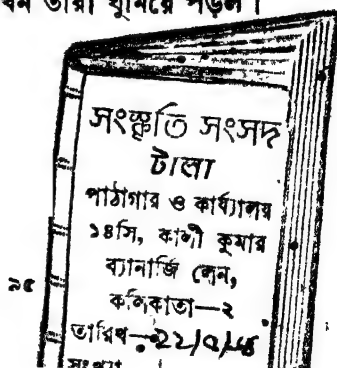 তারা ঘুমিয়ে পড়ল।
সংস্কৃতি সংসদ
টালা
পাঠাগার ও কার্য্যালয়
১৪সি, কালী কুমার
ব্যানার্জি লেন,
কলিকাতা—২
৯৫
তারিখ—
সংখ্যা